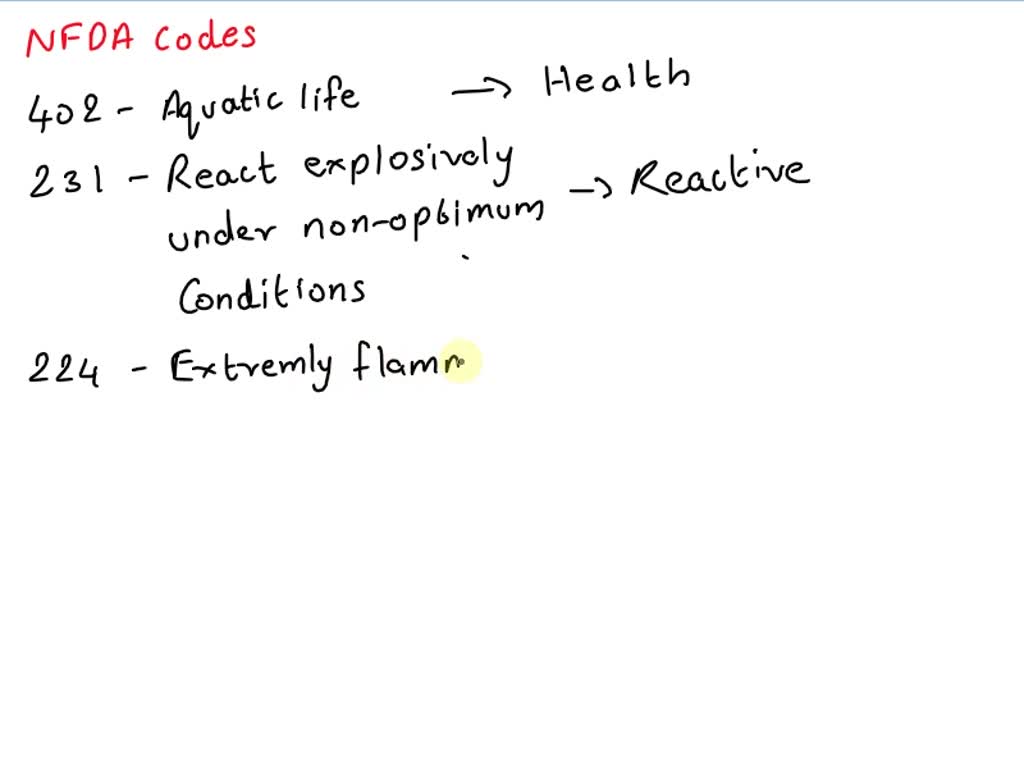 NFDA Codes
402 - Aquatic life → Health
231 - React explosively
under non-optimum → Reactive
Conditions
224 - Extremly flamm